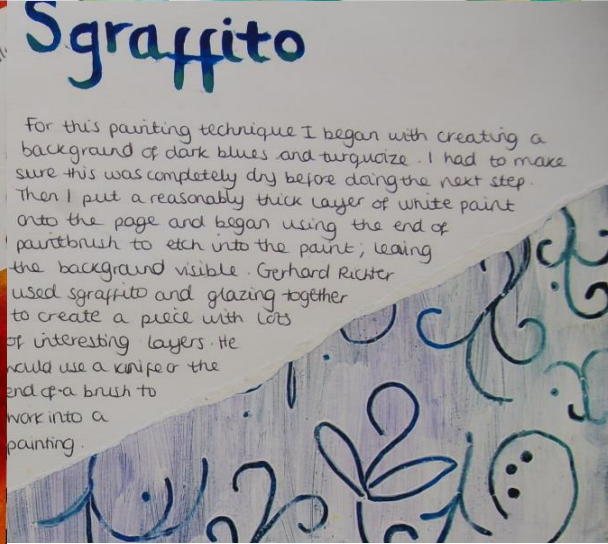 Sgraffito
For this painting technique I began with creating a
background of dark blues and turquoize. I had to make
sure this was completely dry before doing the next step.
Then I put a reasonably thick layer of white paint
onto the page and began using the end of
paintbrush to etch into the paint; leaving
the background visible. Gerhard Richter
used sgraffito and glazing together
to create a piece with lots
of interesting layers. He
would use a knife or the
end of a brush to
work into a
painting.